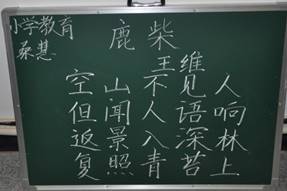 小学教育
桑慧
鹿柴
王维
空山不见人
但闻人语响
返景入深林
复照青苔上